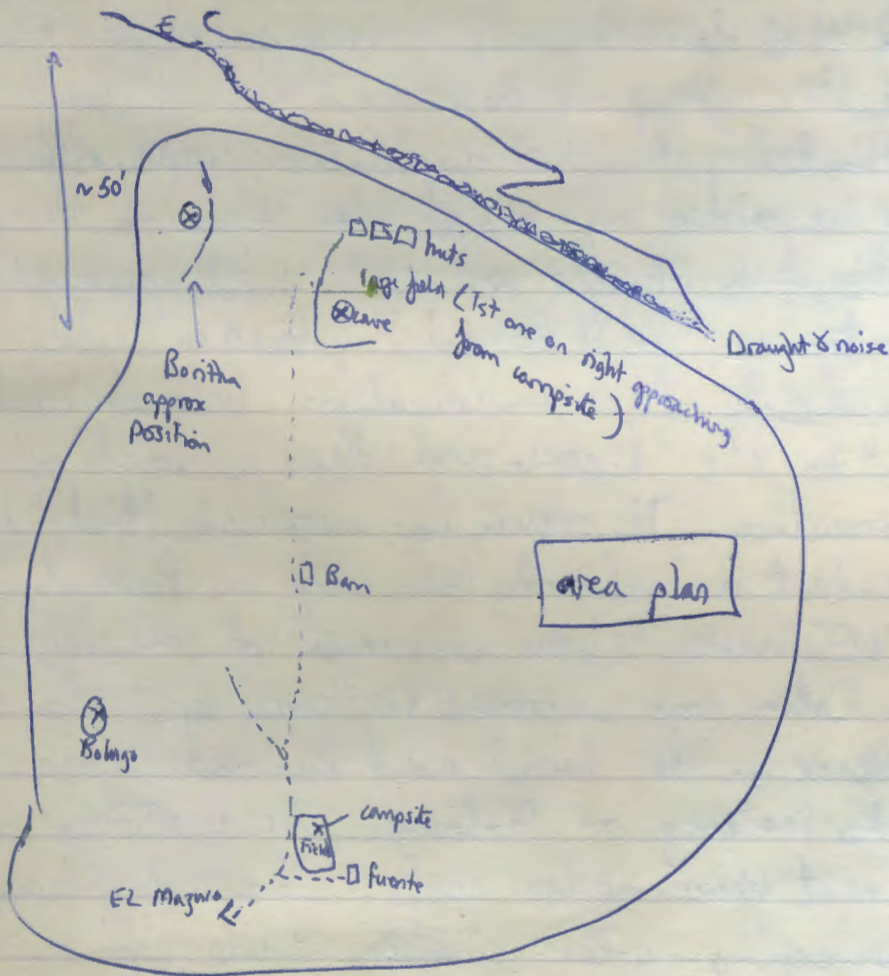 E
~50'
huts
large field (1st one on right approaching
from campsite)
cave
Draught & noise
Boritha
approx
position
Barn
area plan
Bolugo
campsite
Field
fuente
EL Mazuco